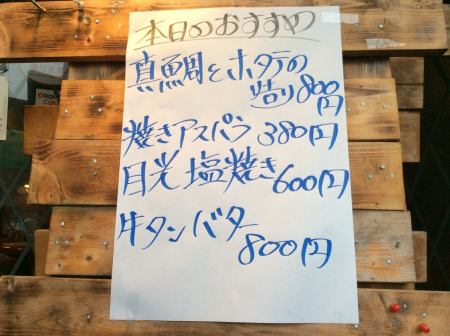 本日のおすすめ
真鯛とホタテの
造り800円
焼きアスパラ 380円
目光 塩焼き600円
牛タンバター
800円